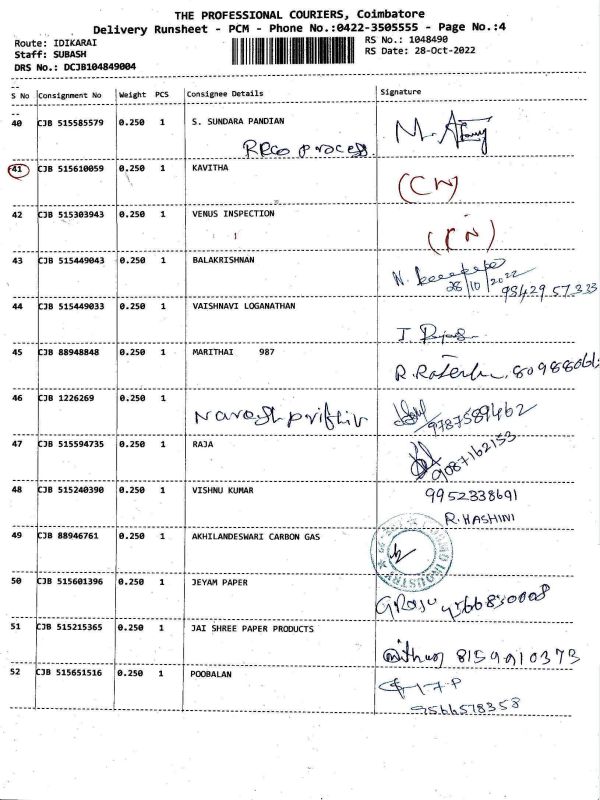 THE PROFESSIONAL COURIERS, Coimbatore
Delivery Runsheet - PCM - Phone No.:0422-3505555 - Page No.:4
Route: IDIKARAI
Staff: SUBASH
DRS No.: DCJB104849004
RS No.: 1048490
RS Date: 28-Oct-2022
S No Consignment No Weight PCS Consignee Details Signature
40 CJB 515585579 0.250 1 S. SUNDARA PANDIAN
process
41 CJB 515610059 0.250 1 KAVITHA
(CN)
42 CJB 515303943 0.250 1 VENUS INSPECTION
43 CJB 515449043 0.250 1 BALAKRISHNAN
28/10/2022
98429 57333
44 CJB 515449033 0.250 1 VAISHNAVI LOGANATHAN
45 CJB 88948848 0.250 1 MARITHAI 987
46 CJB 1226269 0.250 1
9787589462
47 CJB 515594735 0.250 1 RAJA
9087162153
48 CJB 515240390 0.250 1 VISHNU KUMAR
9952338691
R.HASHINI
49 CJB 88946761 0.250 1 AKHILANDESWARI CARBON GAS
50 CJB 515601396 0.250 1 JEYAM PAPER
51 CJB 515215365 0.250 1 JAI SHREE PAPER PRODUCTS
8159910373
52 CJB 515651516 0.250 1 POOBALAN
9566578358